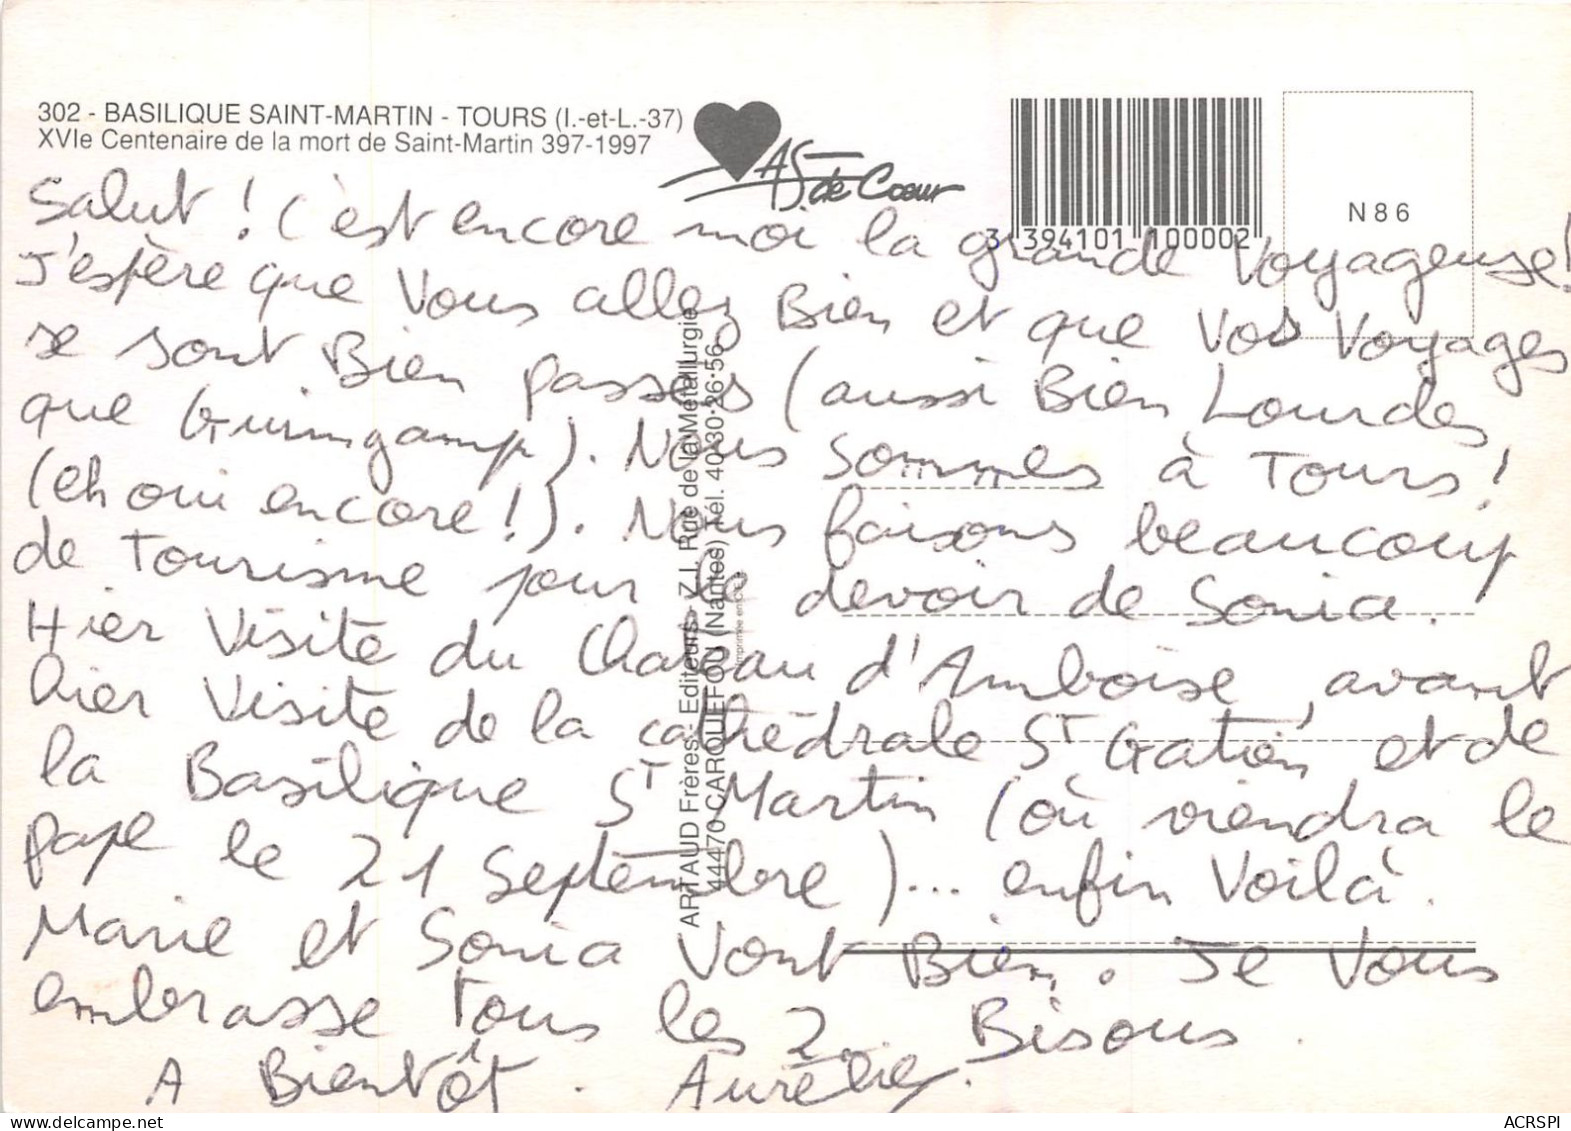 302 - BASILIQUE SAINT-MARTIN - TOURS (I.-et-L.-37)
XVIe Centenaire de la mort de Saint-Martin 397-1997
AS de Cœur
3 394101 100002
N86
Salut ! C'est encore moi la grande Voyageuse !
J'espère que Vous allez Bien et que Vos Voyages
se sont Bien passés (aussi Bien Lourdes
que Guimgamp). Nous sommes à Tours !
(eh oui encore !). Nous faisons beaucoup
de Tourisme pour le devoir de Sonia.
Hier Visite du Chateau d'Amboise, avant
hier Visite de la cathédrale St Gatien et de
la Basilique St Martin (où viendra le
pape le 21 Septembre)... enfin Voilà.
Marie et Sonia Vont Bien. Je Vous
embrasse Tous les 2. Bisous.
A Bientôt. Aurélie.
ARTAUD Frères - Editeurs - Z.I. Rue de la Métallurgie
44470 CARQUEFOU (Nantes) Tél. 40·30·26·56
ACRSPI